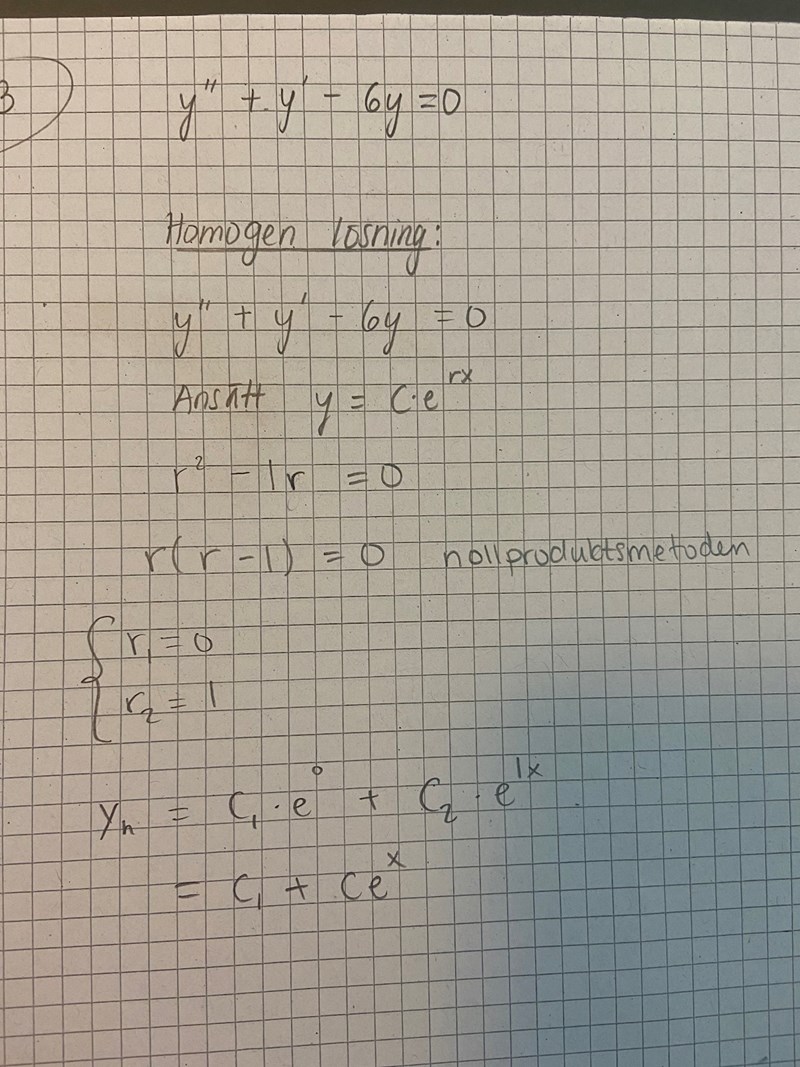 3
y'' + y' - 6y = 0
Homogen lösning:
y'' + y' - 6y = 0
Ansätt y = C·e^{rx}
r² - 1r = 0
r(r - 1) = 0 nollproduktsmetoden
{ r₁ = 0
r₂ = 1
y_h = C₁·e^0 + C₂·e^{1x}
= C₁ + Ce^x